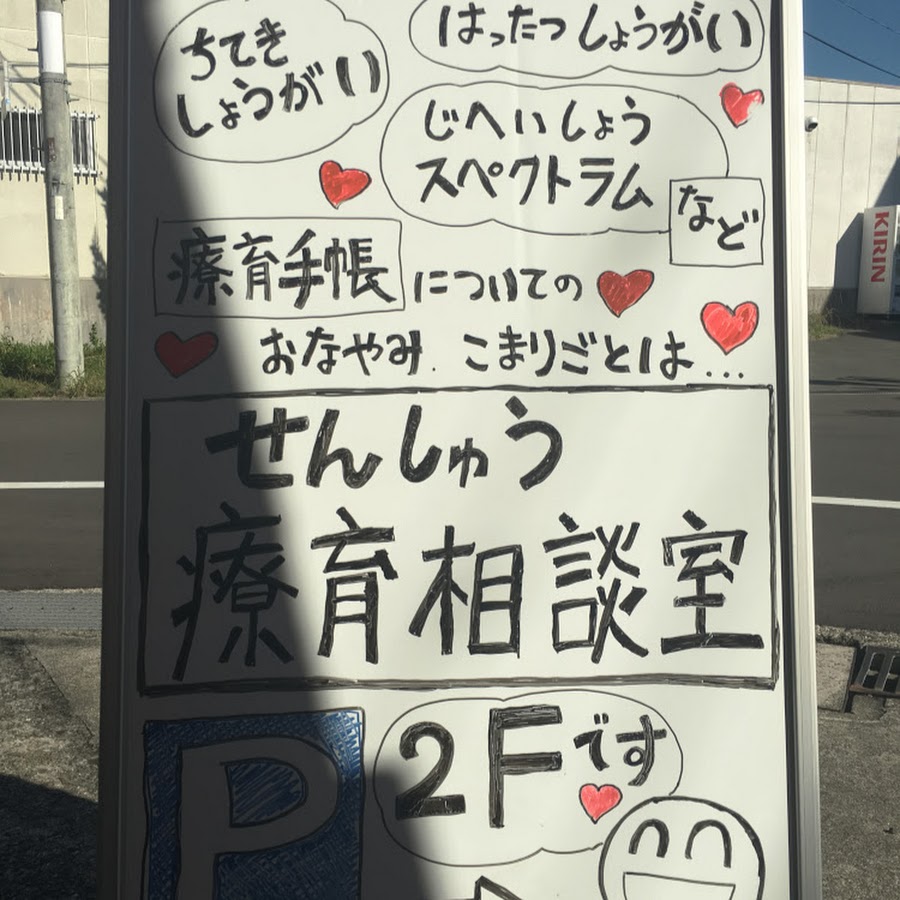 ちてき
しょうがい
はったつしょうがい
じへいしょう
スペクトラム
など
療育手帳についての
おなやみ.こまりごとは...
せんしゅう
療育相談室
P
2Fです
KIRIN